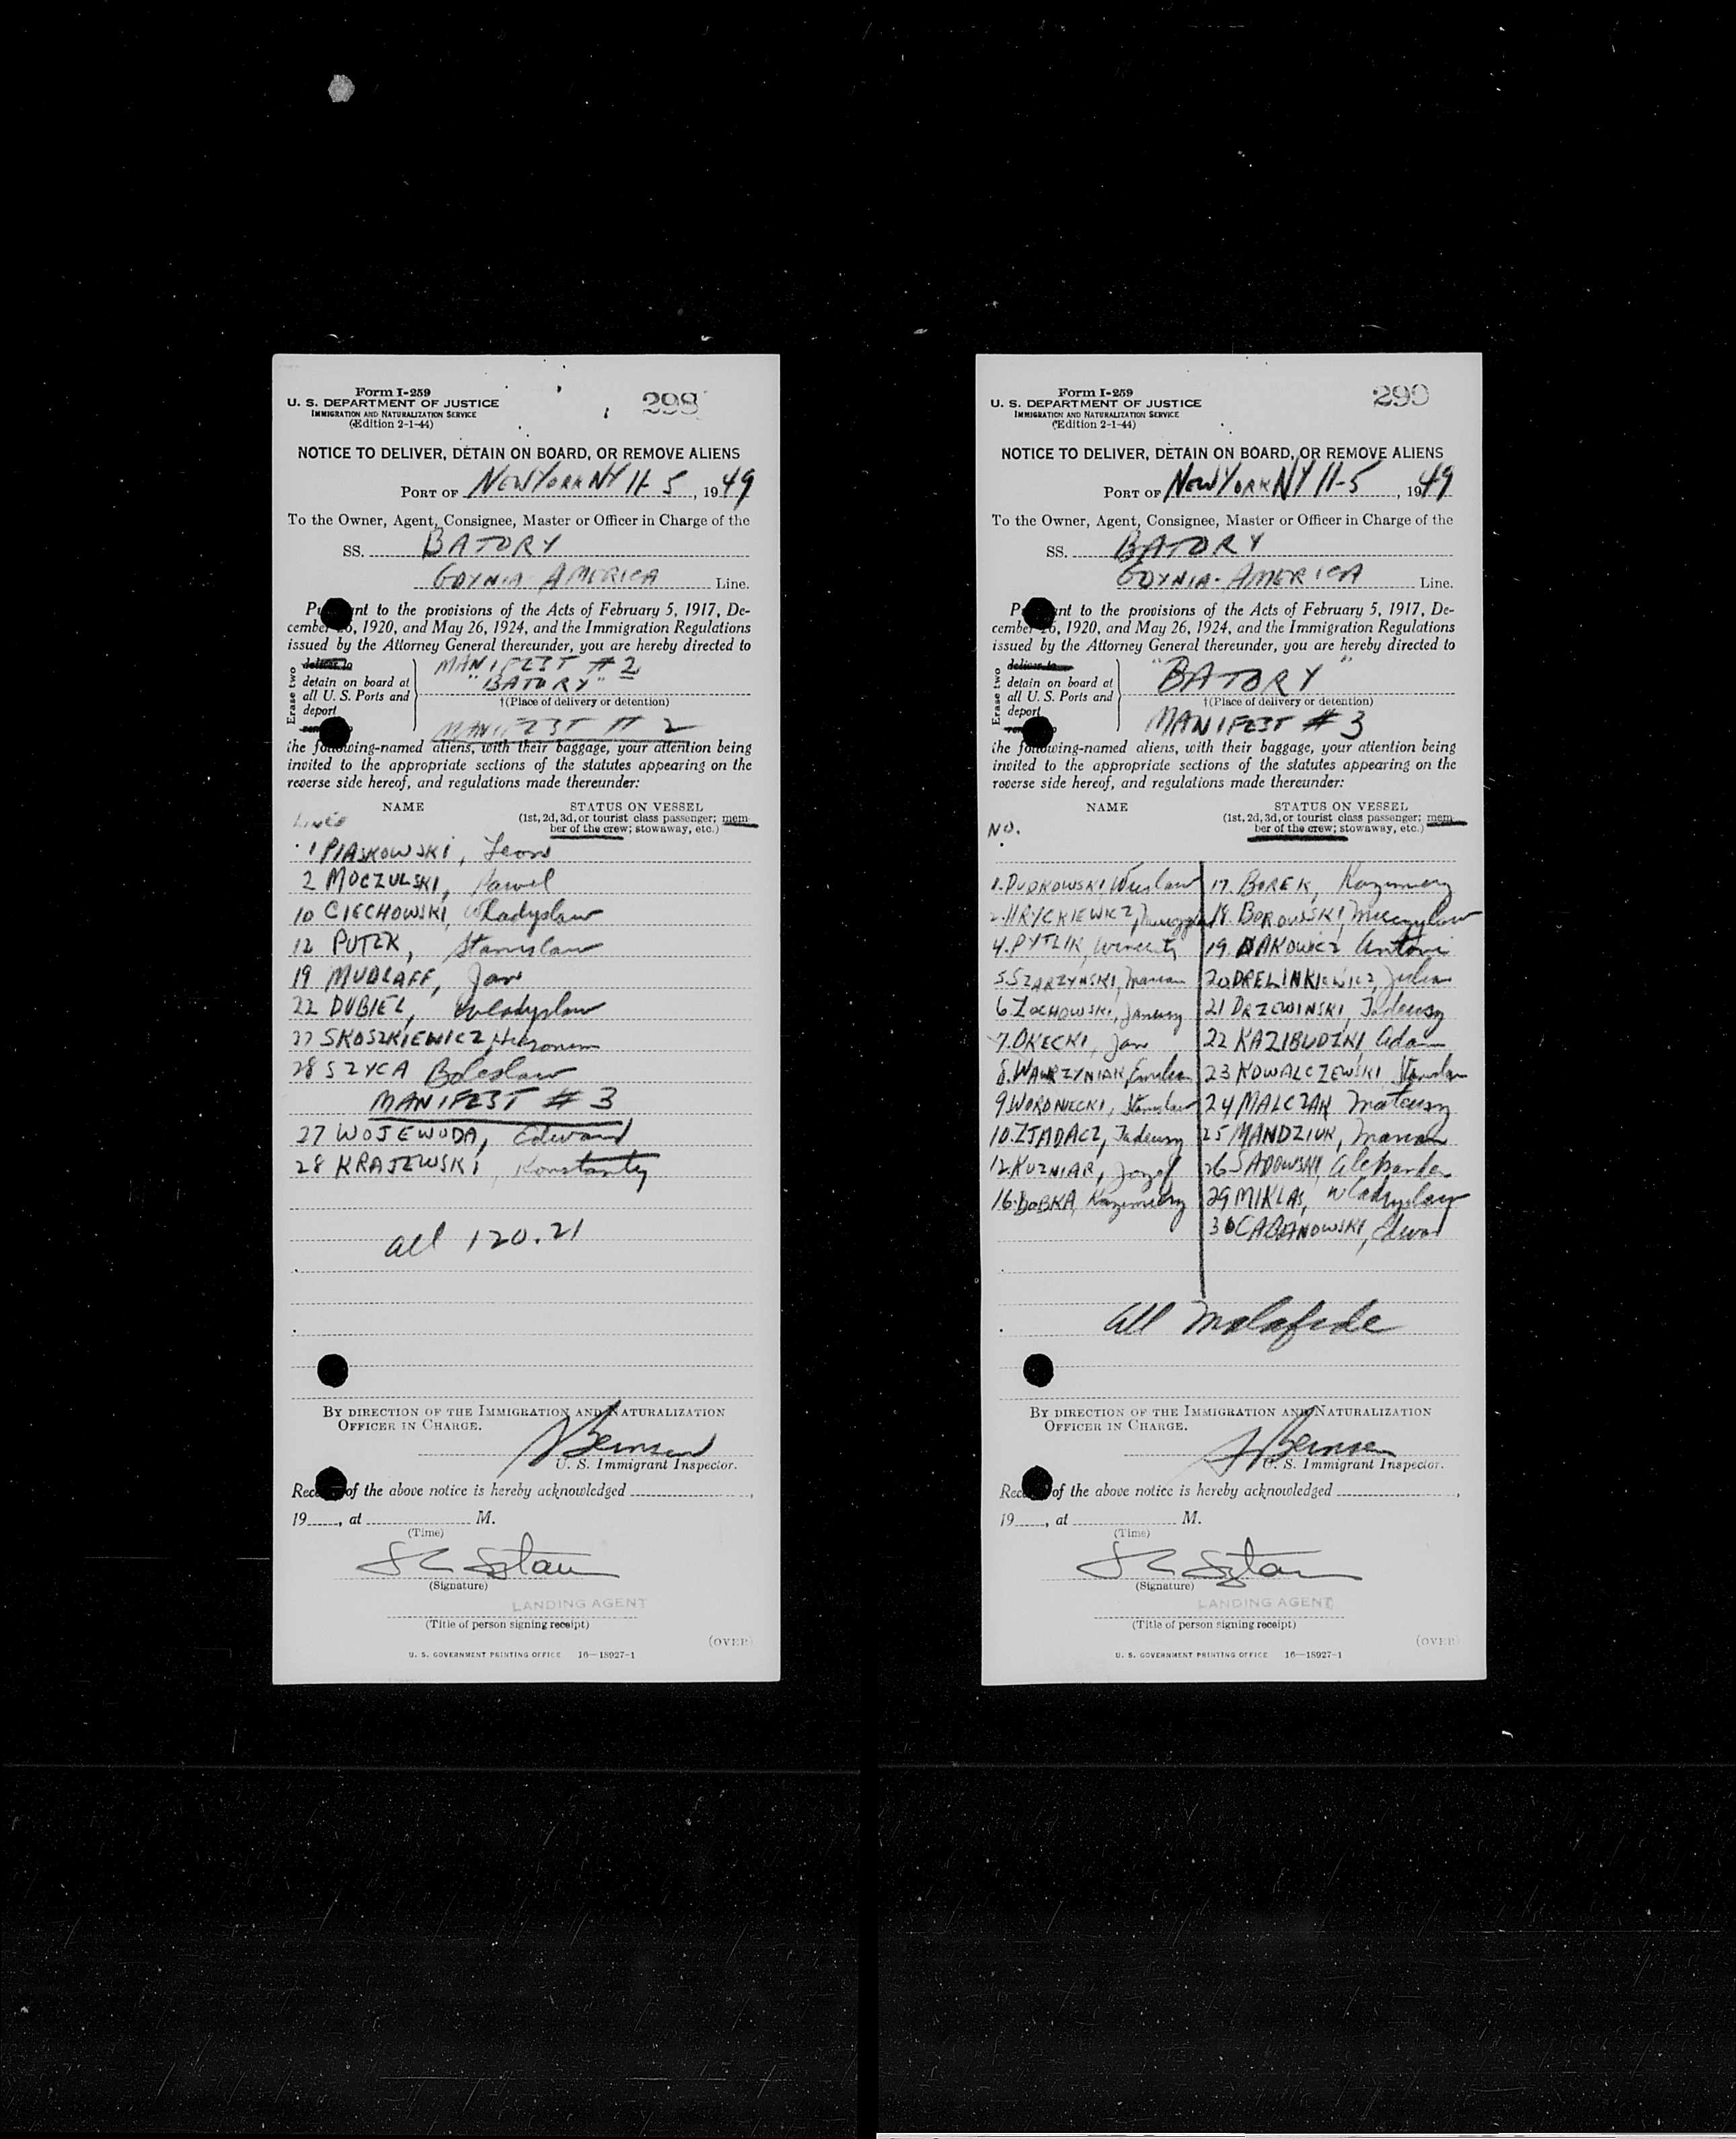 Form I-259
U. S. DEPARTMENT OF JUSTICE
IMMIGRATION AND NATURALIZATION SERVICE
(Edition 2-1-44)
298
NOTICE TO DELIVER, DETAIN ON BOARD, OR REMOVE ALIENS
PORT OF NEW YORK NY 11-5, 1949
To the Owner, Agent, Consignee, Master or Officer in Charge of the
SS. BATORY
GDYNIA-AMERICA Line.
nt to the provisions of the Acts of February 5, 1917, De-
cember 26, 1920, and May 26, 1924, and the Immigration Regulations
issued by the Attorney General thereunder, you are hereby directed to
Erase two
deliver to
detain on board at
all U. S. Ports and
deport
MANIFEST #2
"BATORY"
†(Place of delivery or detention)
MANIFEST # 2
the following-named aliens, with their baggage, your attention being
invited to the appropriate sections of the statutes appearing on the
reverse side hereof, and regulations made thereunder:
NAME STATUS ON VESSEL
(1st, 2d, 3d, or tourist class passenger; mem-
ber of the crew; stowaway, etc.)
LINES
1 PIASKOWSKI, Leon
2 MOCZULSKI, Pawel
10 CIECHOWSKI, Wladyslaw
12 PUTEK, Stanislaw
19 MUDLAFF, Jan
22 DUBIEL, Wladyslaw
27 SKOSZKIEWICZ, Hieronim
28 SZYCA Boleslaw
MANIFEST # 3
27 WOJEWODA, Edward
28 KRAJEWSKI, Konstanty
all 120.21
BY DIRECTION OF THE IMMIGRATION AND NATURALIZATION
OFFICER IN CHARGE.
U. S. Immigrant Inspector.
of the above notice is hereby acknowledged
19, at M.
(Time)
(Signature)
LANDING AGENT
(Title of person signing receipt)
(OVER)
U. S. GOVERNMENT PRINTING OFFICE 16—18927-1
Form I-259
U. S. DEPARTMENT OF JUSTICE
IMMIGRATION AND NATURALIZATION SERVICE
(Edition 2-1-44)
299
NOTICE TO DELIVER, DETAIN ON BOARD, OR REMOVE ALIENS
PORT OF NEW YORK NY 11-5, 1949
To the Owner, Agent, Consignee, Master or Officer in Charge of the
SS. BATORY
GDYNIA-AMERICA Line.
nt to the provisions of the Acts of February 5, 1917, De-
cember 26, 1920, and May 26, 1924, and the Immigration Regulations
issued by the Attorney General thereunder, you are hereby directed to
Erase two
deliver to
detain on board at
all U. S. Ports and
deport
"BATORY"
†(Place of delivery or detention)
MANIFEST # 3
the following-named aliens, with their baggage, your attention being
invited to the appropriate sections of the statutes appearing on the
reverse side hereof, and regulations made thereunder:
NAME STATUS ON VESSEL
(1st, 2d, 3d, or tourist class passenger; mem-
ber of the crew; stowaway, etc.)
NO.
1. DUDKOWSKI, Wieslaw
2. HRYCKIEWICZ,
4. PYTLIK, Wincenty
5. SZARZYNSKI, Marian
6. ZOCHOWSKI, Janusz
7. OKECKI, Jan
8. WAWRZYNIAK, Emilian
9 WORONIECKI, Stanislaw
10. ZJADACZ, Tadeusz
12. KUZNIAR, Jozef
16. BOBKA, Kazimierz
17. BOREK, Kazimierz
18. BOROWSKI, Mieczyslaw
19. DAKOWICZ Antoni
20 DRELINKIEWICZ, Julian
21 DRZEWINSKI, Tadeusz
22 KAZIBUDZKI, Adam
23 KOWALCZEWSKI
24 MALCZAK Mateusz
25 MANDZIUK, Marian
26 SADOWSKI, Aleksander
29 MIKLAS, Wladyslaw
30 CABANOWSKI, Edward
all malafide
BY DIRECTION OF THE IMMIGRATION AND NATURALIZATION
OFFICER IN CHARGE.
U. S. Immigrant Inspector.
of the above notice is hereby acknowledged
19, at M.
(Time)
(Signature)
LANDING AGENT
(Title of person signing receipt)
(OVER)
U. S. GOVERNMENT PRINTING OFFICE 16—18927-1